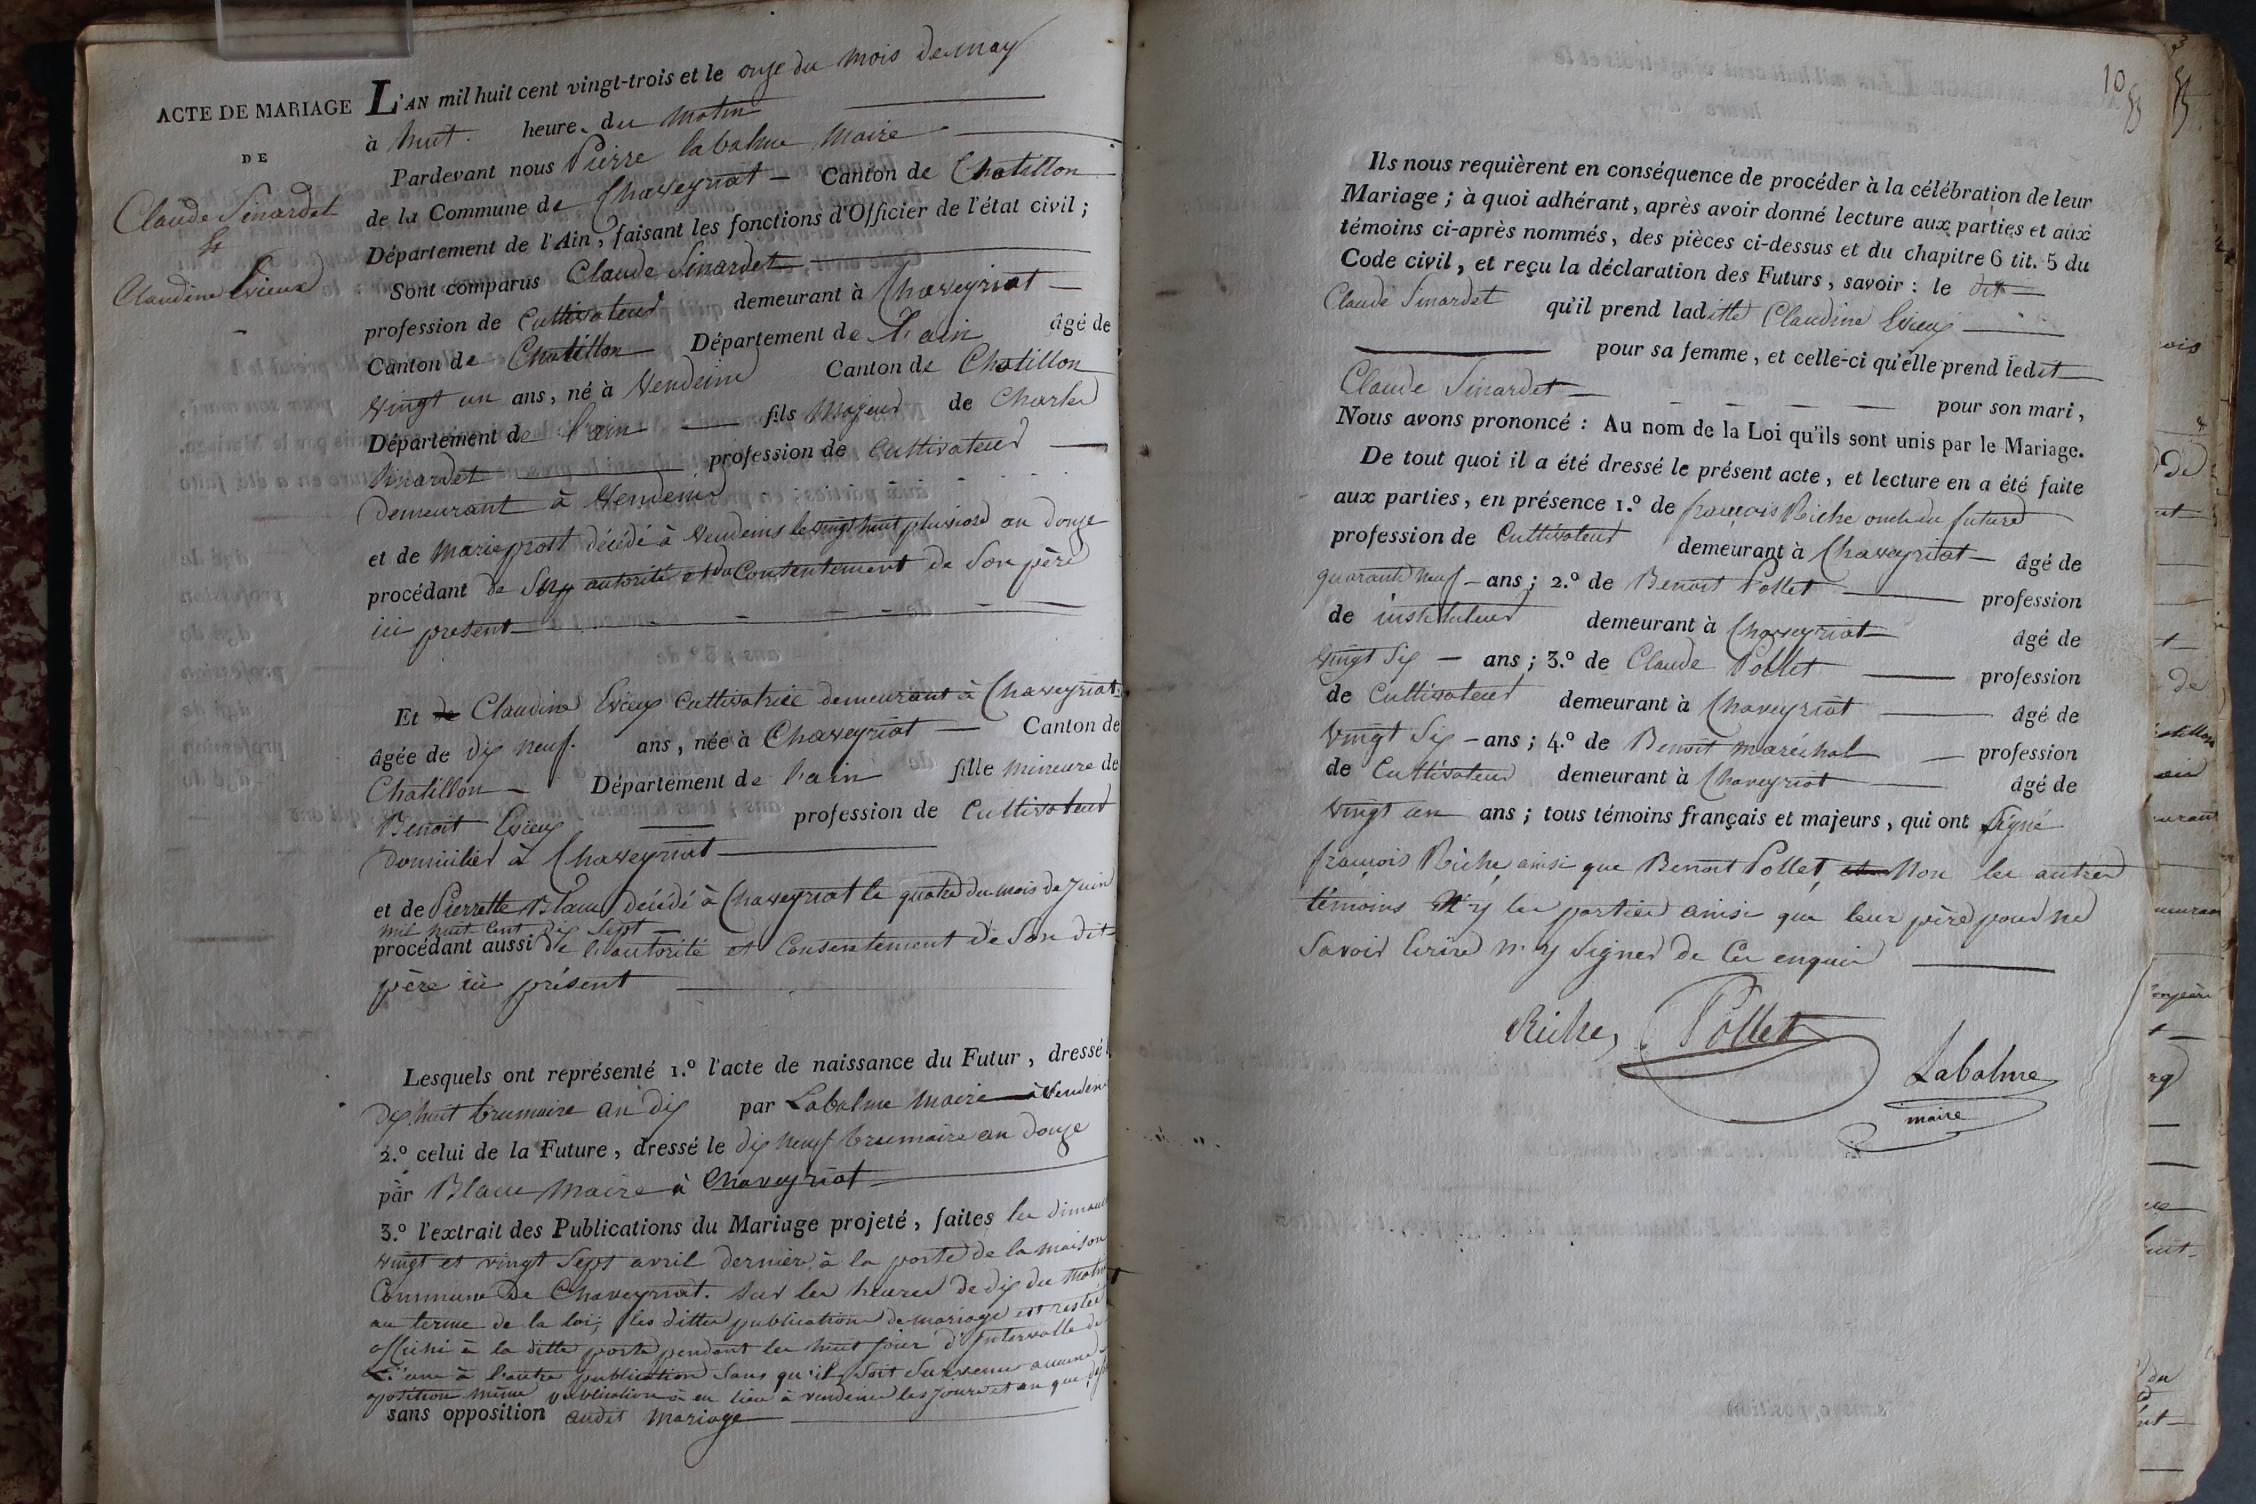 ACTE DE MARIAGE
DE
Claude Sinardet
&
Claudine Evieux
L'AN mil huit cent vingt-trois et le onze du mois de may
à huit heure du matin
Pardevant nous Pierre Labalme Maire
de la Commune de Chaveyriat Canton de Chatillon
Département de l'Ain, faisant les fonctions d'Officier de l'état civil;
Sont comparus Claude Sinardet
profession de Cultivateur demeurant à Chaveyriat
Canton de Chatillon Département de l'ain âgé de
vingt un ans, né à Vendeins Canton de Chatillon
Département de l'ain fils Majeur de Charles
Sinardet profession de Cultivateur
demeurant à Vendeins
et de Marie prost décédé à Vendeins le vingt huit pluviose an douze
procédant de Son autorité et du Consentement de Son père
ici présent
Et de Claudine Evieux Cultivatrice demeurant à Chaveyriat
âgée de dix neuf ans, née à Chaveyriat Canton de
Chatillon Département de l'ain fille mineure de
Benoit Evieux profession de Cultivateur
domicilié à Chaveyriat
et de Pierrette Blanc décédé à Chaveyriat le quatre du mois de Juin
mil huit cent dix Sept
procédant aussi de l'autorité et Consentement de Son dit
père ici présent
Lesquels ont représenté 1.º l'acte de naissance du Futur, dressé
dix huit brumaire an dix par Labalme Maire à Vendeins
2.º celui de la Future, dressé le dix neuf brumaire an douze
par Blanc Maire à Chaveyriat
3.º l'extrait des Publications du Mariage projeté, faites les dimanche
vingt et vingt Sept avril dernier à la porte de la maison
Commune De Chaveyriat. Sur les heures de dix du Matin
au terme de la loi; les dittes publication de mariage est resté
affiché à la ditte porte pendant les huit jour d'intervalle de
L'une à l'autre publication Sans qu'il Soit Survenu aucune
opposition même publication à eu lieu à vendeins les jours et an que
sans opposition audit Mariage
10
Ils nous requièrent en conséquence de procéder à la célébration de leur
Mariage; à quoi adhérant, après avoir donné lecture aux parties et aux
témoins ci-après nommés, des pièces ci-dessus et du chapitre 6 tit. 5 du
Code civil, et reçu la déclaration des Futurs, savoir: le dit
Claude Sinardet qu'il prend laditte Claudine Evieux
pour sa femme, et celle-ci qu'elle prend ledit
Claude Sinardet pour son mari,
Nous avons prononcé: Au nom de la Loi qu'ils sont unis par le Mariage.
De tout quoi il a été dressé le présent acte, et lecture en a été faite
aux parties, en présence 1.º de françois Riche oncle du futur
profession de Cultivateur demeurant à Chaveyriat âgé de
quarante neuf ans; 2.º de Benoit Pollet profession
de instituteur demeurant à Chaveyriat âgé de
vingt Six ans; 3.º de Claude Pollet profession
de Cultivateur demeurant à Chaveyriat âgé de
vingt Six ans; 4.º de Benoit Maréchal profession
de Cultivateur demeurant à Chaveyriat âgé de
vingt un ans; tous témoins français et majeurs, qui ont Signé
françois Riche ainsi que Benoit Pollet Non les autres
témoins N'y les parties ainsi que leur père pour ne
Savoir Ecrire n'y Signer de Ce enquis
Riche, Pollet
Labalme
maire